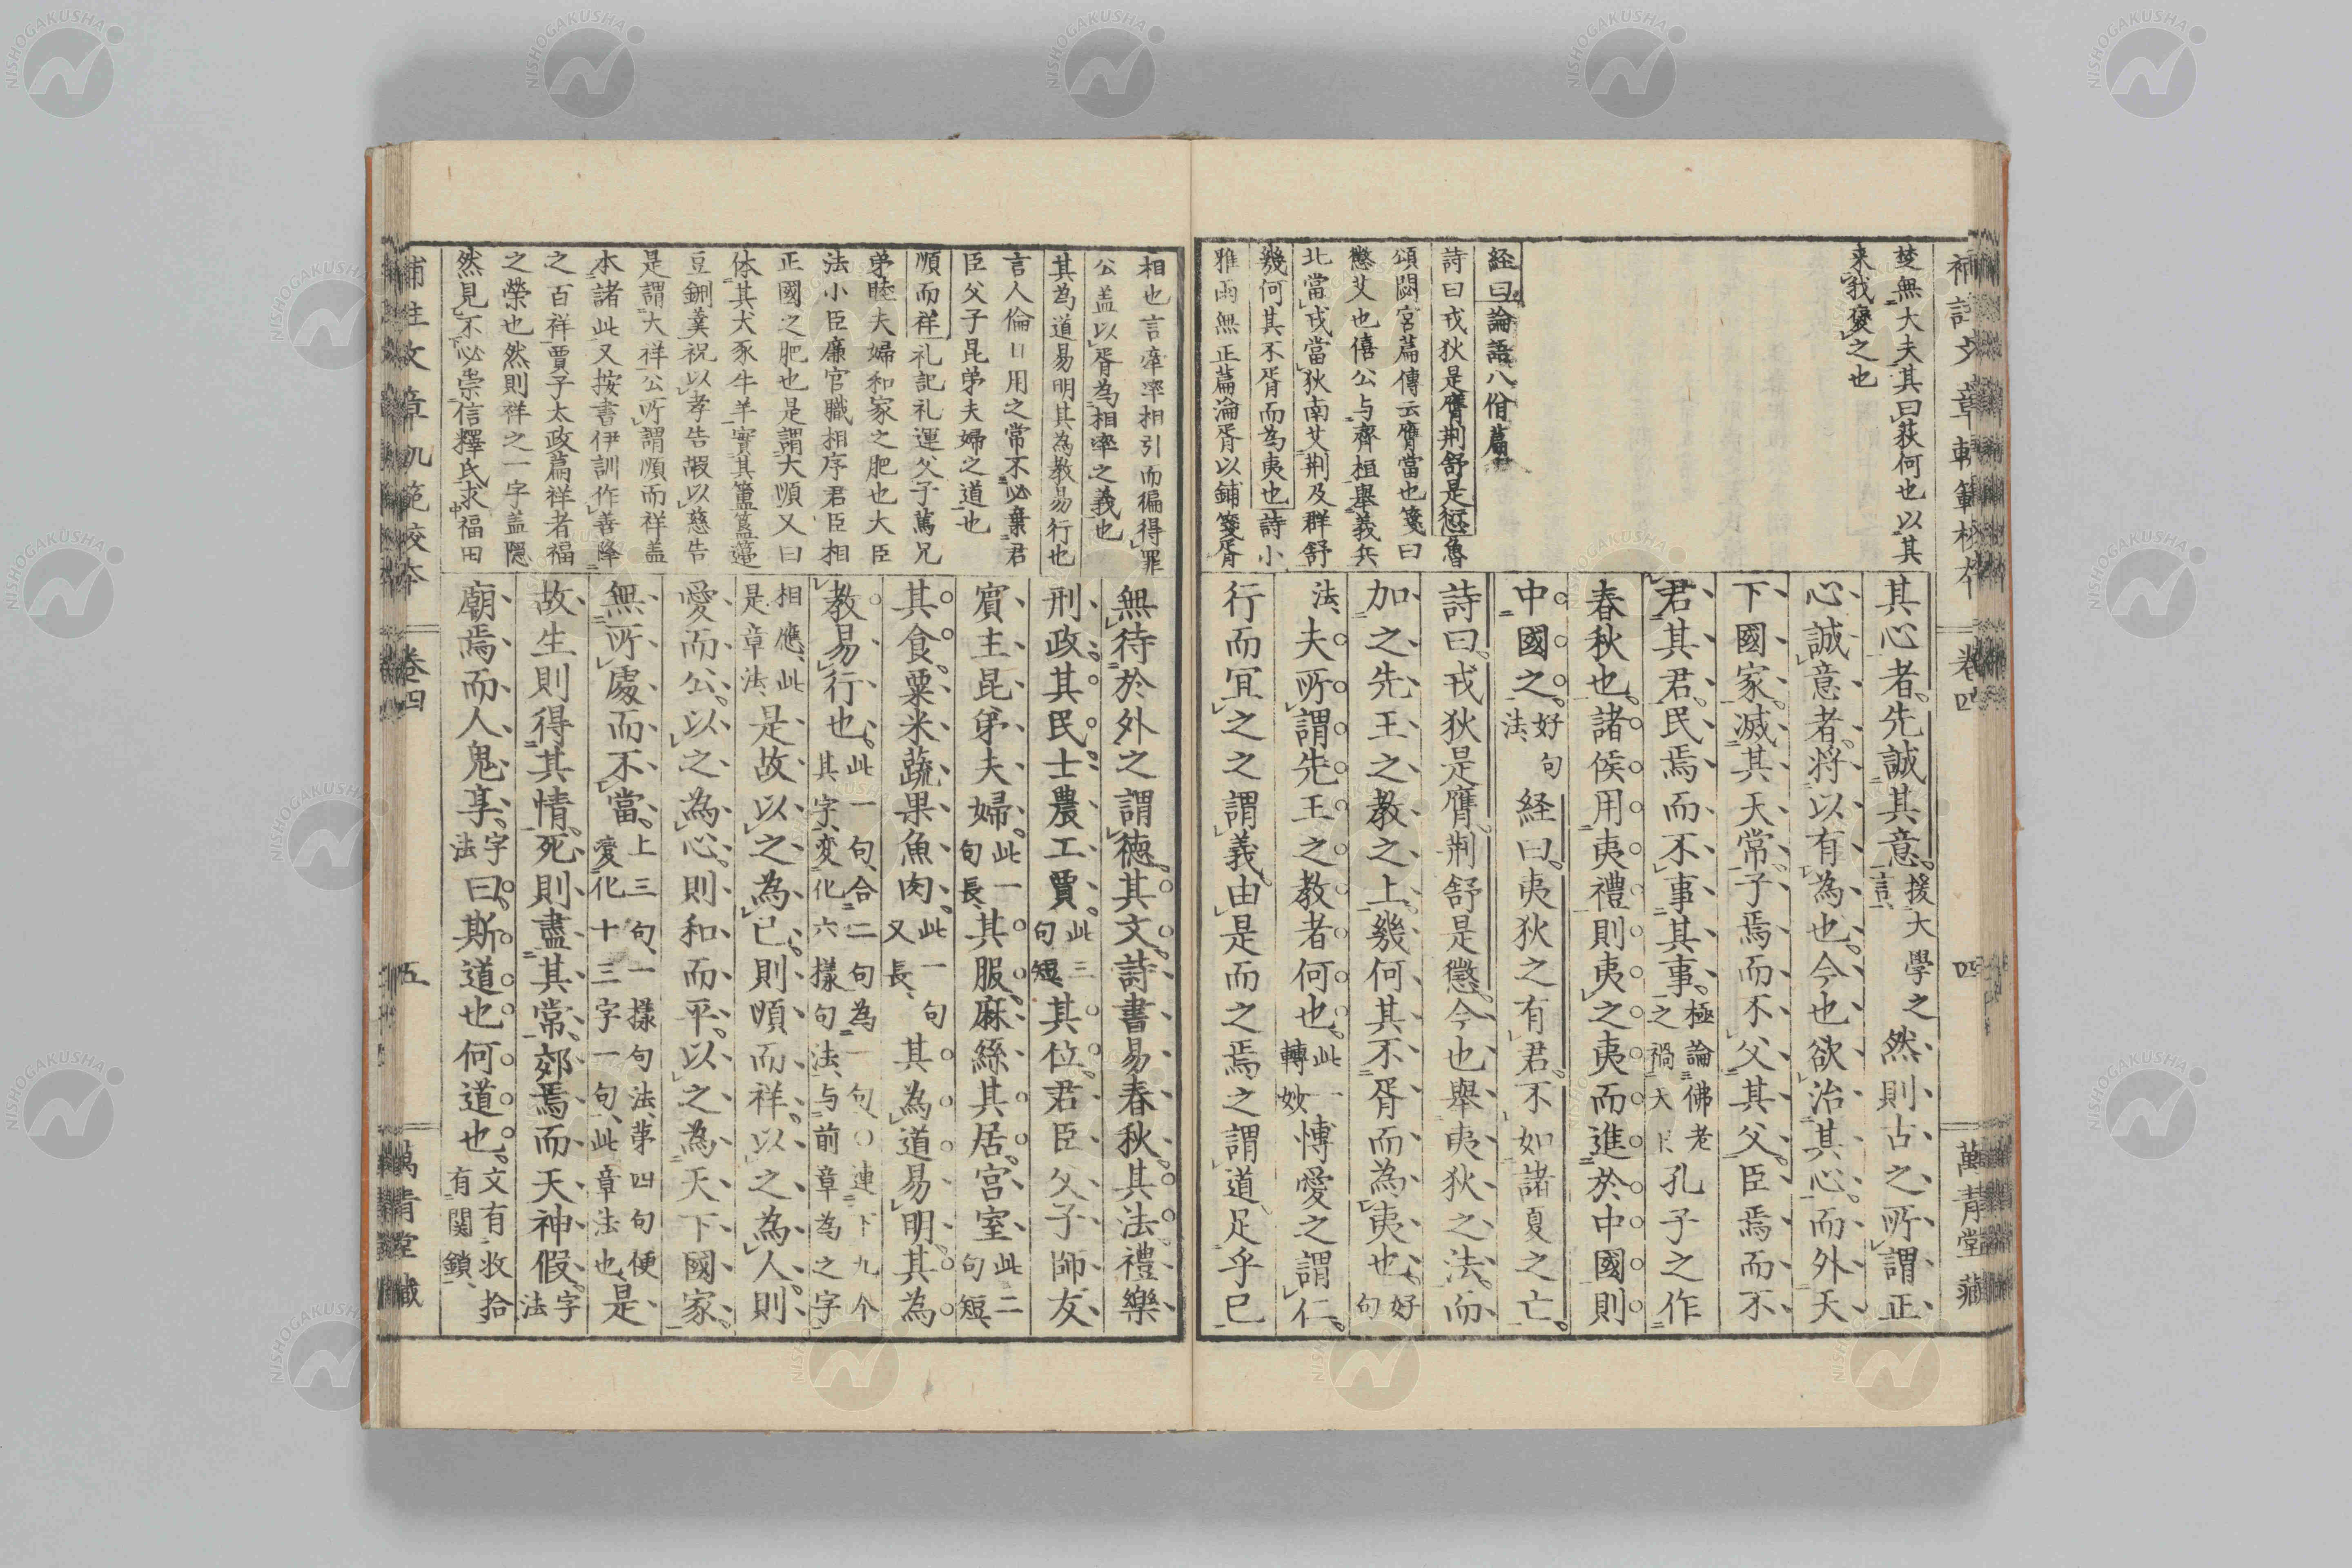 補註文章軌範校本 卷四 四 萬青堂藏
楚無大夫其曰荻何也以其
来我褒之也
経曰論語八佾篇
詩曰戎狄是膺荆舒是懲魯
頌閟宮篇傳云膺當也箋曰
懲艾也僖公与齊桓舉義兵
北當戎當狄南艾荆及群舒
幾何其不胥而為夷也詩小
雅雨無正篇淪胥以鋪箋胥
其心者先誠其意援大學之言然則古之所謂正
心誠意者将以有為也今也欲治其心而外天
下國家滅其天常子焉而不父其父臣焉而不
君其君民焉而不事其事極論佛老之禍天下孔子之作
春秋也諸侯用夷禮則夷之夷而進於中國則
中國之好句法経曰夷狄之有君不如諸夏之亡
詩曰戎狄是膺荆舒是懲今也舉夷狄之法而
加之先王之教之上幾何其不胥而為夷也好句
法夫所謂先王之教者何也此一轉妙愽愛之謂仁
行而冝之之謂義由是而之焉之謂道足乎已
相也言牽率相引而徧得罪
公盖以胥為相率之義也
其為道易明其為教易行也
言人倫日用之常不必棄君
臣父子昆弟夫婦之道也
順而祥礼記礼運父子篤兄
弟睦夫婦和家之肥也大臣
法小臣廉官職相序君臣相
正國之肥也是謂大順又曰
体其犬豕牛羊實其簠簋籩
豆鉶羹祝以孝告嘏以慈告
是謂大祥公所謂順而祥盖
本諸此又按書伊訓作善降
之百祥賈子太政篇祥者福
之榮也然則祥之一字盖隠
然見不必崇信釋氏求福田
無待於外之謂徳其文詩書易春秋其法禮樂
刑政其民士農工賈此三句短其位君臣父子師友
賓主昆弟夫婦此一句長其服麻絲其居宮室此二句短
其食粟米蔬果魚肉此一句又長其為道易明其為
教易行也此一句合二句為一句〇連下九个其字変化六様句法与前章為之字
相應此是章法是故以之為已則順而祥以之為人則
愛而公以之為心則和而平以之為天下國家
無所處而不當上三句一様句法苐四句便変化十三字一句此章法也是
故生則得其情死則盡其常郊焉而天神假字法
廟焉而人鬼享字法曰斯道也何道也文有收拾有関鎖
補註文章軌範校本 卷四 五 萬青堂藏